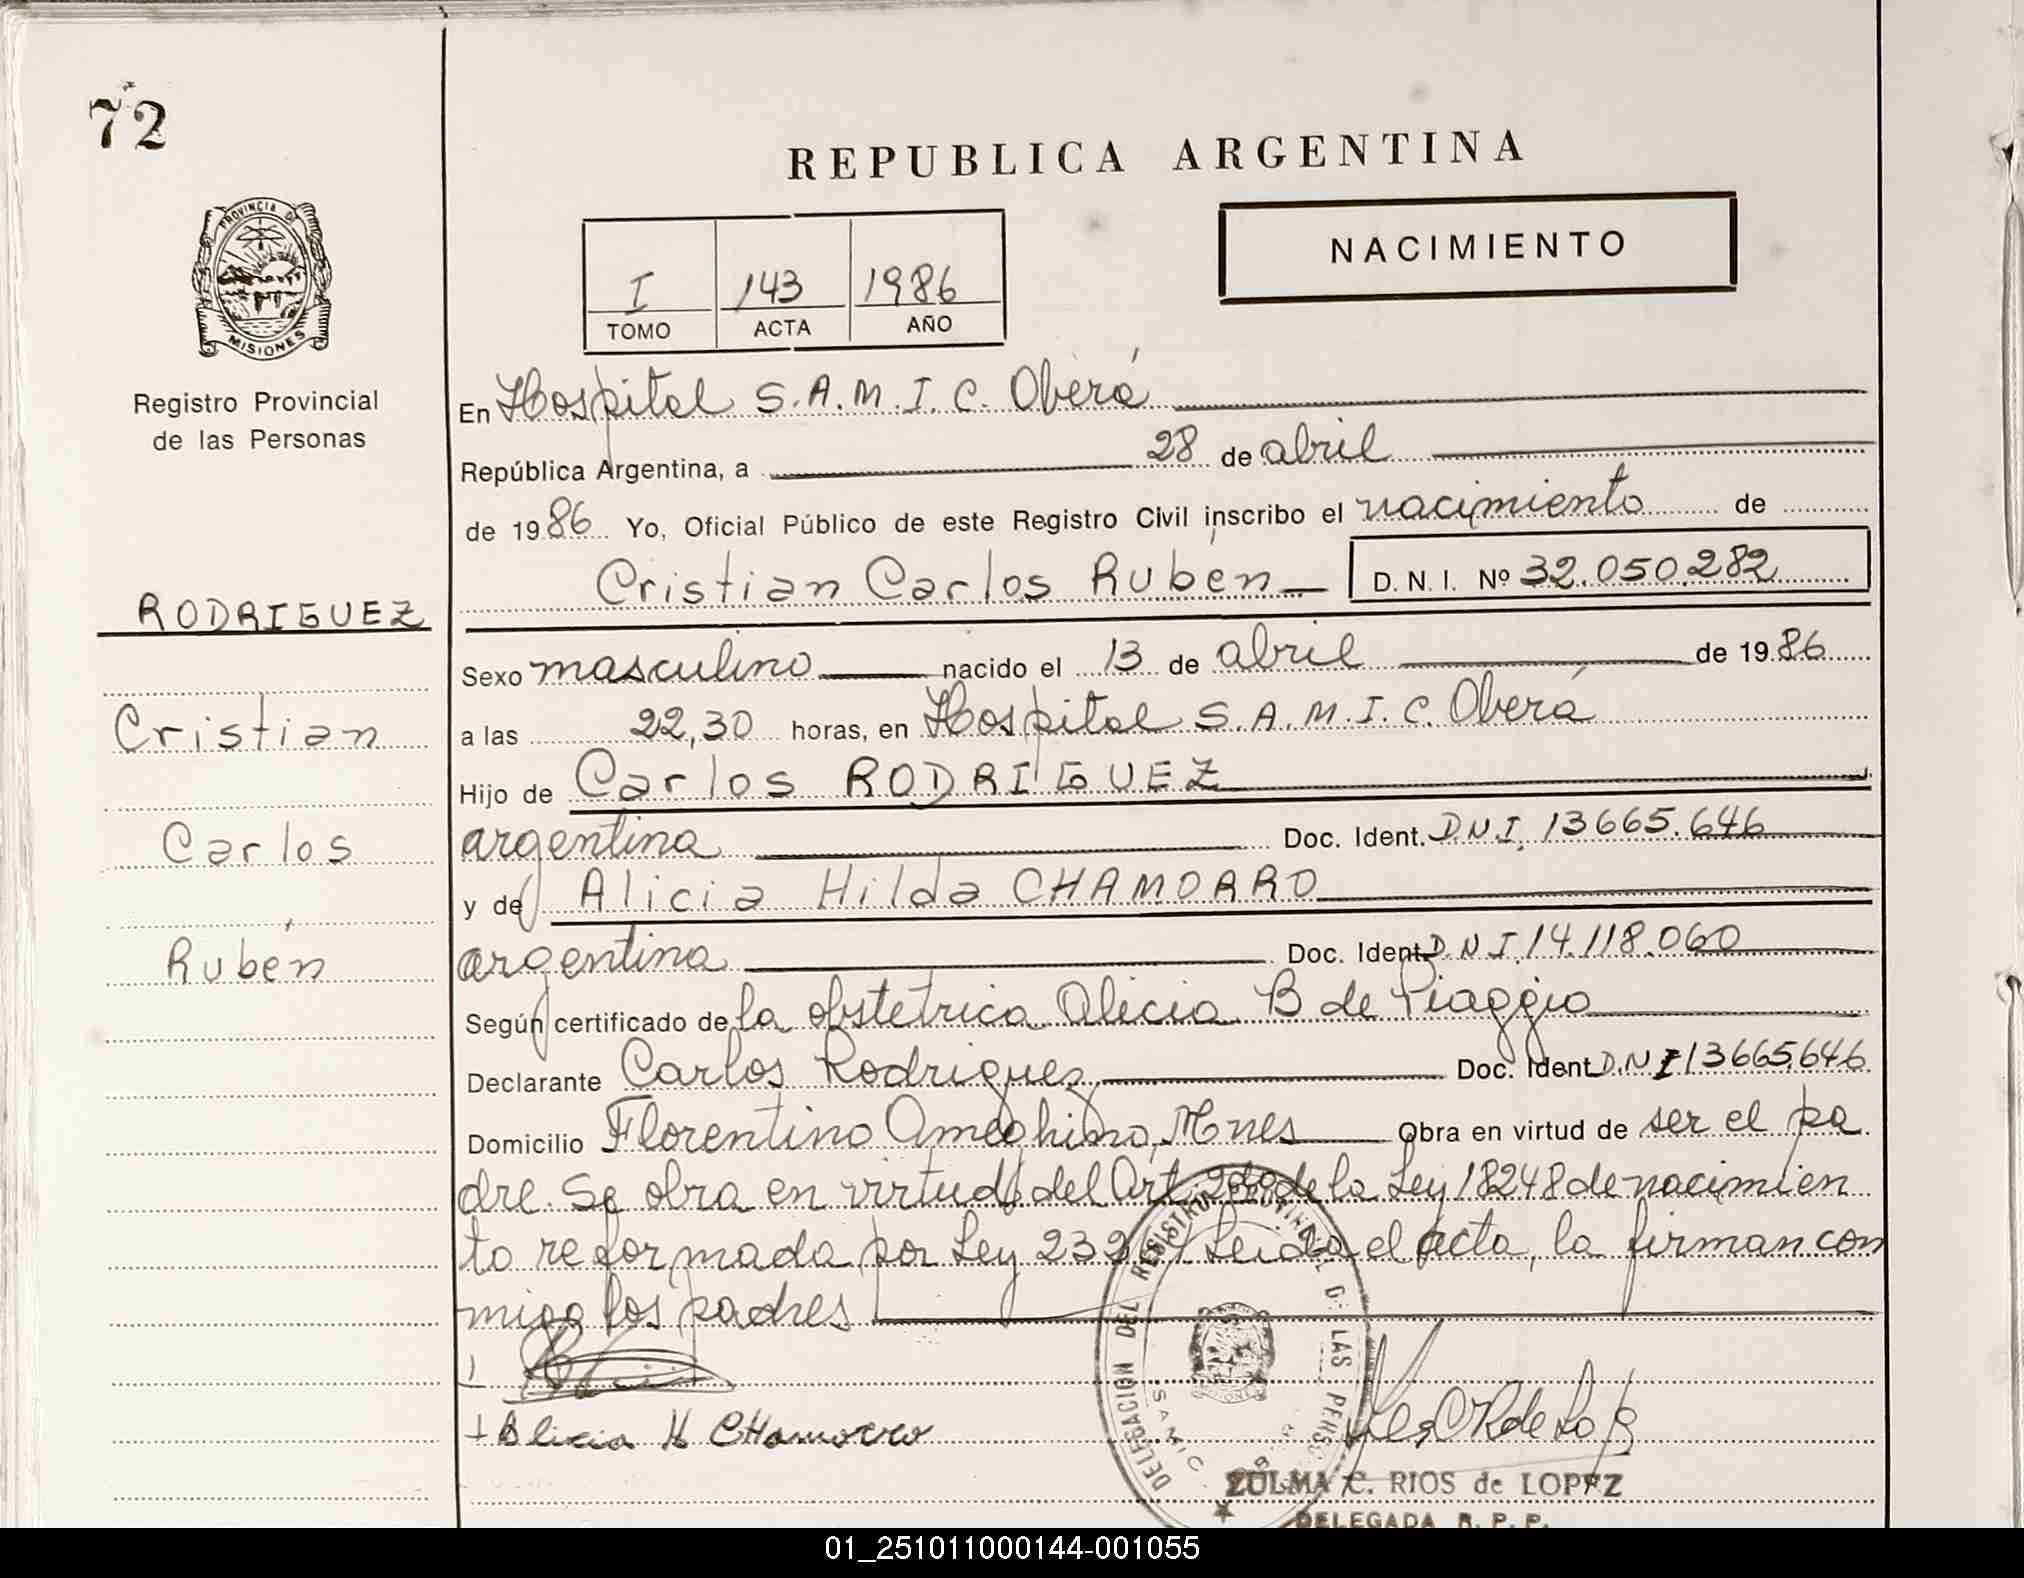 72
REPUBLICA ARGENTINA
PROVINCIA DE
MISIONES
NACIMIENTO
I 143 1986
TOMO ACTA AÑO
Registro Provincial
de las Personas
En Hospital S.A.M.I.C. Oberá
República Argentina, a 28 de abril
de 1986 Yo, Oficial Público de este Registro Civil inscribo el nacimiento de
Cristian Carlos Rubén D.N.I. Nº 32.050.282
RODRIGUEZ
Sexo masculino nacido el 13 de abril de 1986
Cristian
a las 22,30 horas, en Hospital S.A.M.I.C. Oberá
Hijo de Carlos RODRIGUEZ
Carlos
argentina Doc. Ident. D.N.I. 13665.646
y de Alicia Hilda CHAMORRO
Rubén
argentina Doc. Ident. D.N.I. 14.118.060
Según certificado de la obstetrica Alicia B de Piaggio
Declarante Carlos Rodriguez Doc. Ident. D.N.I 13665.646
Domicilio Florentino Ameghino, Mnes Obra en virtud de ser el pa
dre. Se obra en virtud del Art 2do de la Ley 18248 de nacimien
to reformada por Ley Leida el acta, la firman con
migo los padres
Alicia H CHamorro
DELEGACION DEL REGISTRO PROVINCIAL D: LAS PERSO
SAMIC
ZULMA C. RIOS de LOPEZ
DELEGADA R. P. P.
01_251011000144-001055